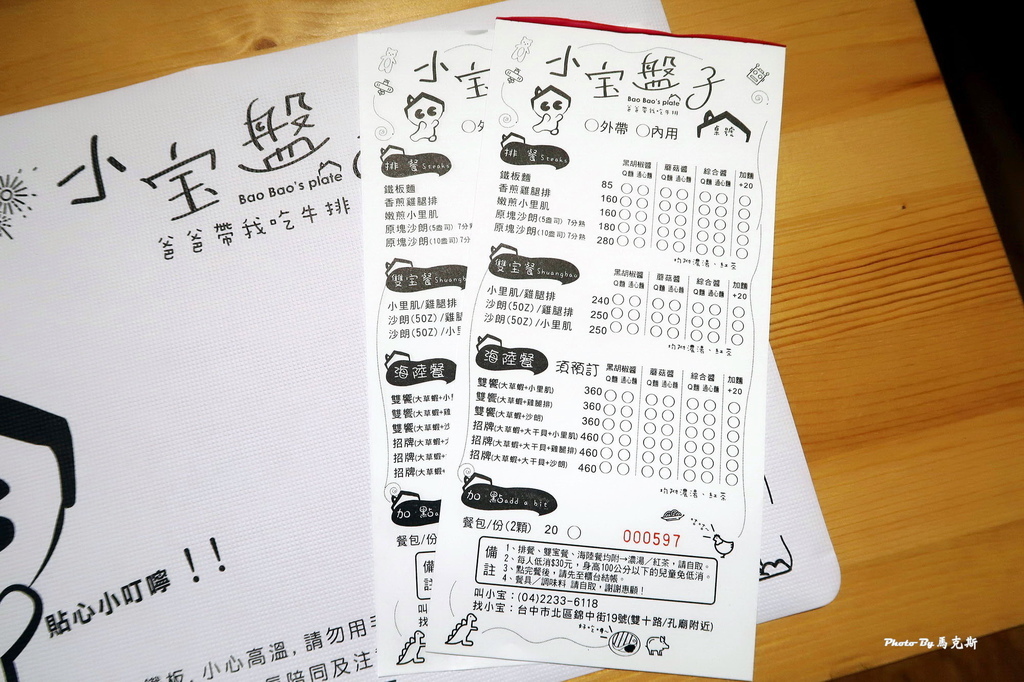 小宝盤
Bao Bao's plate
爸爸帶我吃牛排
貼心小叮嚀!!
小心高溫, 請勿用手
陪同及注意
小宝
排餐 Steaks
鐵板麵
香煎雞腿排
嫩煎小里肌
原塊沙朗(5盎司) 7分熟
原塊沙朗(10盎司) 7分
雙宝餐 Shuangbao
小里肌/雞腿排
沙朗(5OZ)/雞腿排
沙朗(5OZ)/小里
海陸餐
雙饗(大草蝦+小
雙饗(大草蝦+雞
雙饗(大草蝦+沙
招牌(大草蝦+
招牌(大草蝦+
招牌(大草蝦+
加點a
餐包/份
備
註
叫
找
小宝盤子
Bao Bao's plate
爸爸帶我吃牛排
○外帶 ○內用 桌號
排餐 Steaks 黑胡椒醬 蘑菇醬 綜合醬 加麵
Q麵 通心麵 Q麵 通心麵 Q麵 通心麵 +20
鐵板麵 85
香煎雞腿排 160
嫩煎小里肌 160
原塊沙朗(5盎司) 7分熟 180
原塊沙朗(10盎司) 7分熟 280
均附濃湯、紅茶
雙宝餐 Shuangbao 黑胡椒醬 蘑菇醬 綜合醬 加麵
Q麵 通心麵 Q麵 通心麵 Q麵 通心麵 +20
小里肌/雞腿排 240
沙朗(5OZ)/雞腿排 250
沙朗(5OZ)/小里肌 250
均附濃湯、紅茶
海陸餐 須預訂 黑胡椒醬 蘑菇醬 綜合醬 加麵
Q麵 通心麵 Q麵 通心麵 Q麵 通心麵 +20
雙饗(大草蝦+小里肌) 360
雙饗(大草蝦+雞腿排) 360
雙饗(大草蝦+沙朗) 360
招牌(大草蝦+大干貝+小里肌) 460
招牌(大草蝦+大干貝+雞腿排) 460
招牌(大草蝦+大干貝+沙朗) 460
均附濃湯、紅茶
加點 add a bit
餐包/份(2顆) 20 ○ 000597
備註
1、排餐、雙宝餐、海陸餐均附→濃湯/紅茶,請自取。
2、每人低消$30元,身高100公分以下的兒童免低消。
3、點完餐後,請先至櫃台結帳。
4、餐具/調味料 請自取,謝謝惠顧!
叫小宝:(04)2233-6118
找小宝:台中市北區錦中街19號(雙十路/孔廟附近)
Photo By 馬克斯